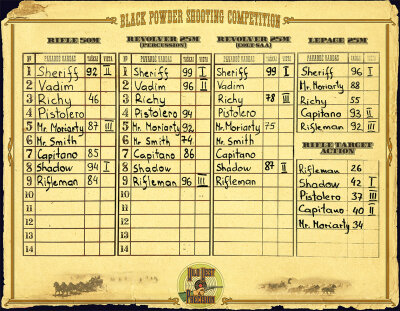 BLACK POWDER SHOOTING COMPETITION
RIFLE 50M
№ PAVARDĖ VARDAS TAŠKAI VIETA
1 Sheriff 92 II
2 Vadim
3 Richy 46
4 Pistolero
5 Mr. Moriarty 87 III
6 Mr. Smith
7 Capitano 85
8 Shadow 94 I
9 Rifleman 84
10
11
12
13
14
REVOLVER 25M
(PERCUSSION)
№ PAVARDĖ VARDAS TAŠKAI VIETA
1 Sheriff 99 I
2 Vadim 96 II
3 Richy
4 Pistolero 94
5 Mr. Moriarty 92
6 Mr. Smith 74
7 Capitano 86
8 Shadow
9 Rifleman 96 III
10
11
12
13
14
REVOLVER 25M
(COLT SAA)
PAVARDĖ VARDAS TAŠKAI VIETA
Sheriff 99 I
Vadim
Richy 78 III
Pistolero
Mr. Moriarty 75
Mr. Smith
Capitano
Shadow 87 II
Rifleman
LEPAGE 25M
PAVARDĖ VARDAS TAŠKAI VIETA
Sheriff 96 I
Mr. Moriarty 88
Richy 55
Capitano 93 II
Rifleman 92 III
RIFLE TARGET
ACTION
Rifleman 26
Shadow 42 I
Pistolero 37 III
Capitano 40 II
Mr. Moriarty 34
OLD WEST
PRECISION